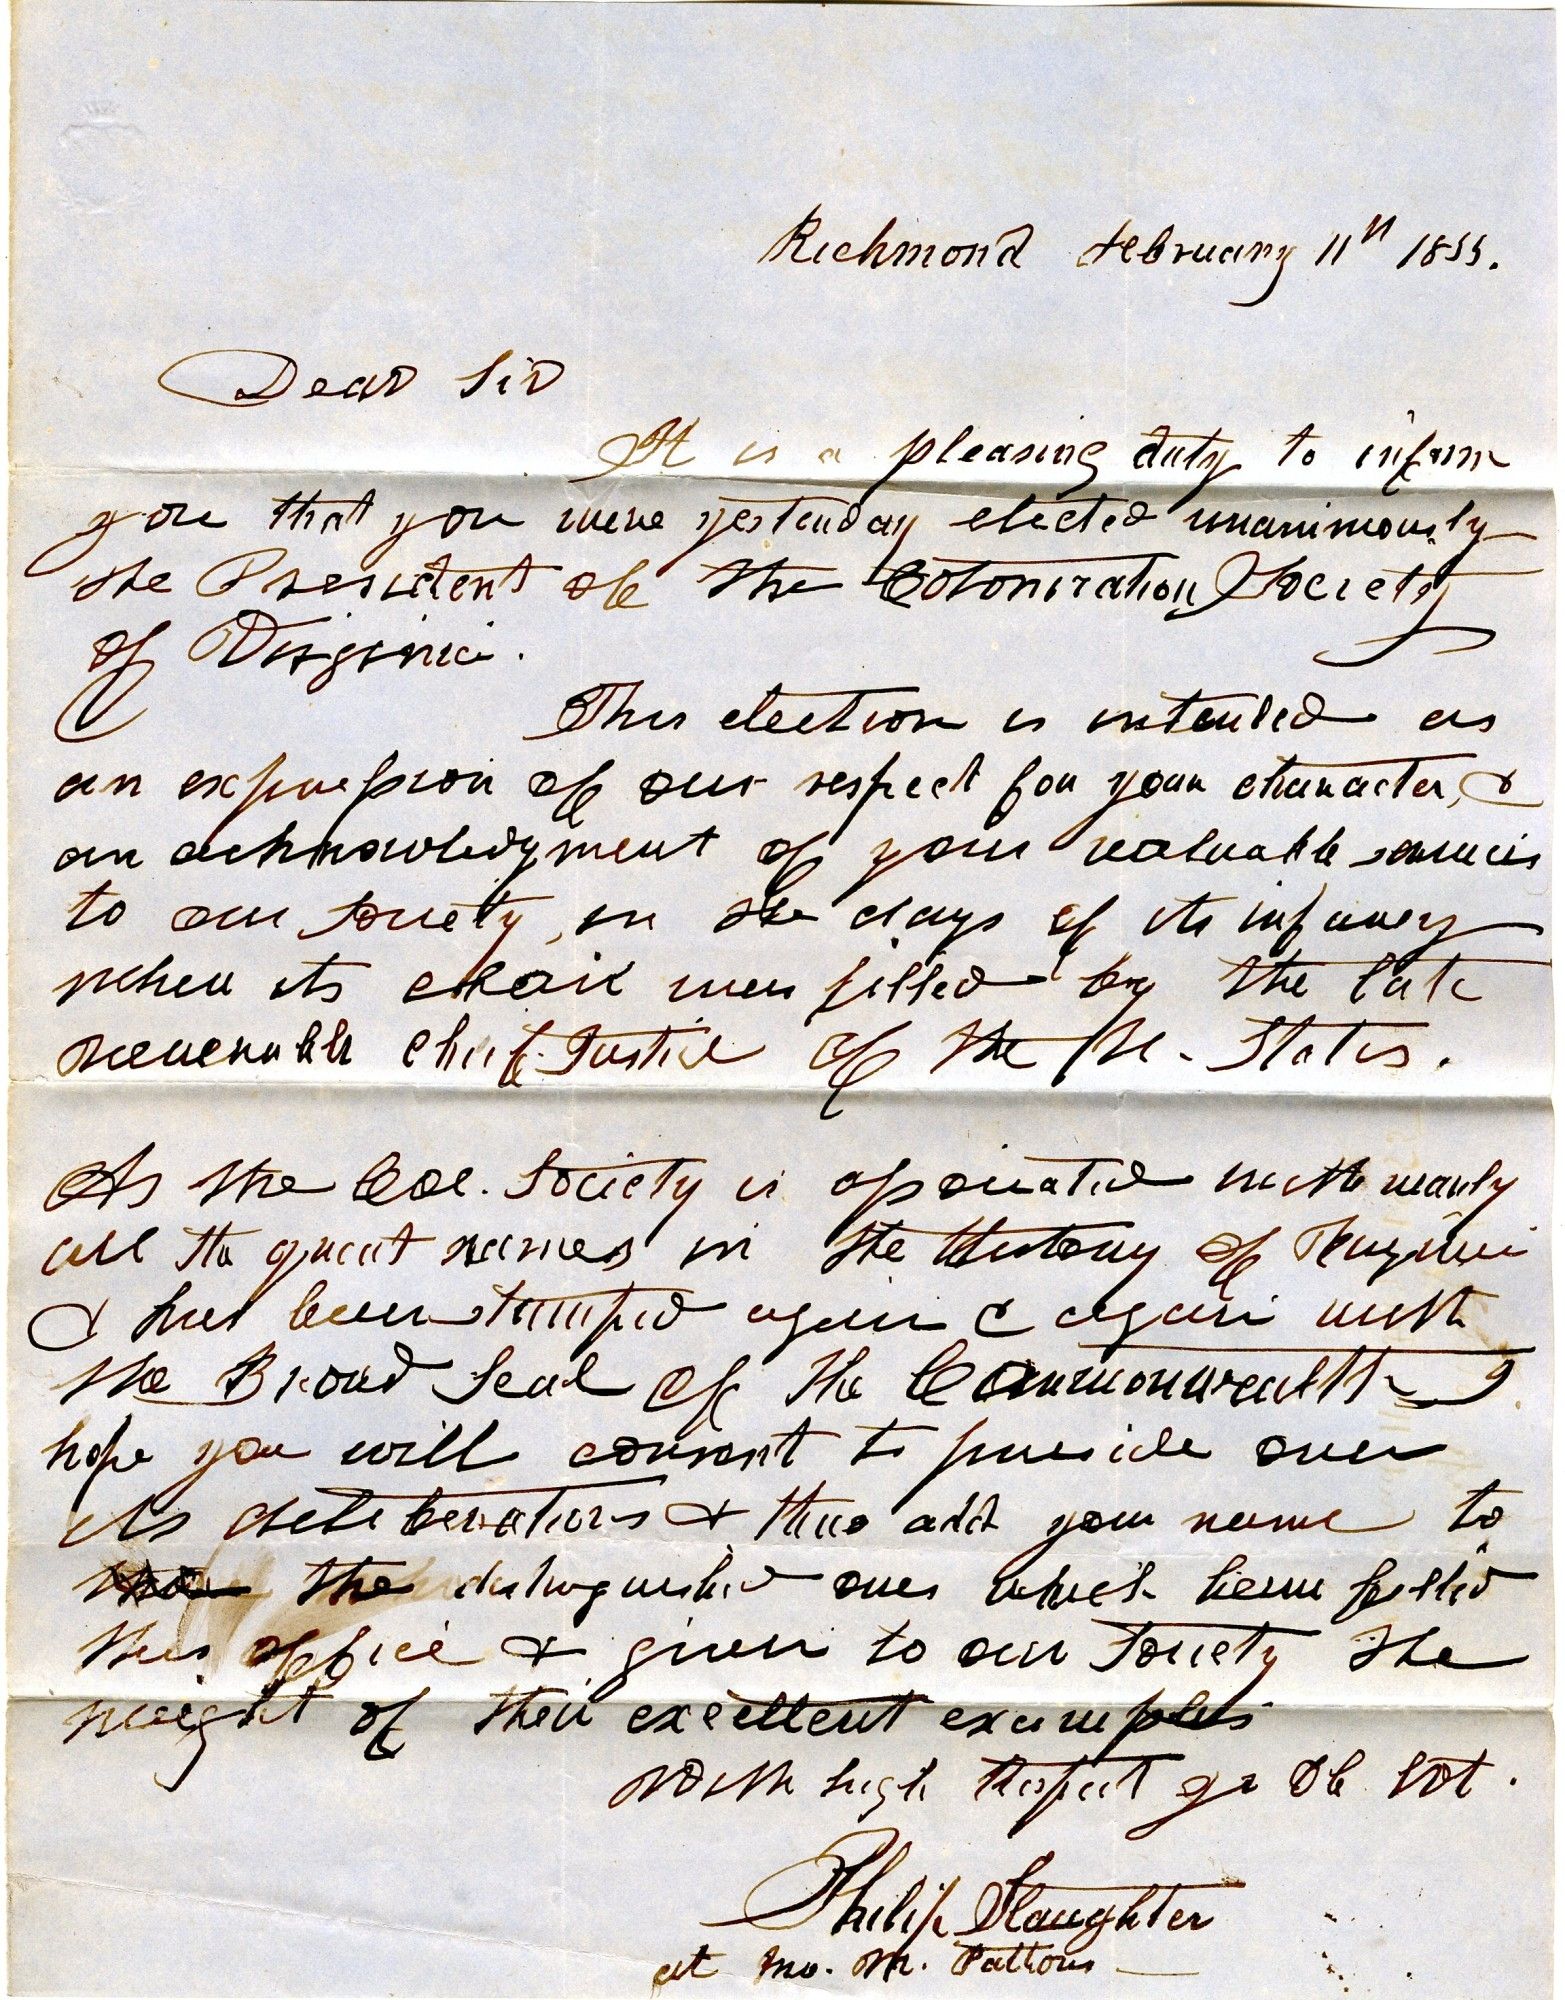 Richmond February 11th 1855.
Dear Sir
It is a pleasing duty to inform
you that you were yesterday elected unanimously
the President of the Colonization Society
of Virginia.
This election is intended as
an expression of our respect for your character, &
an acknowledgment of your valuable services
to our Society, in the days of its infancy
when its chair was filled by the late
venerable Chief Justice of the U. States.
As the Col. Society is associated with nearly
all the great names in the History of Virginia
& has been stamped again & again with
the Broad Seal of the Commonwealth I
hope you will consent to preside over
its deliberations & thus add your name to
the distinguished ones which have filled
this office & given to our Society the
weight of their excellent examples
With high Respect yr Ob Svt.
Philip Slaughter
at Mr. M. Pattons